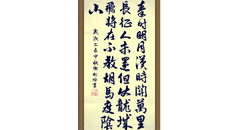 秦時明月漢時關萬里
長征人未還但使龍城
飛將在不教胡馬度陰
山